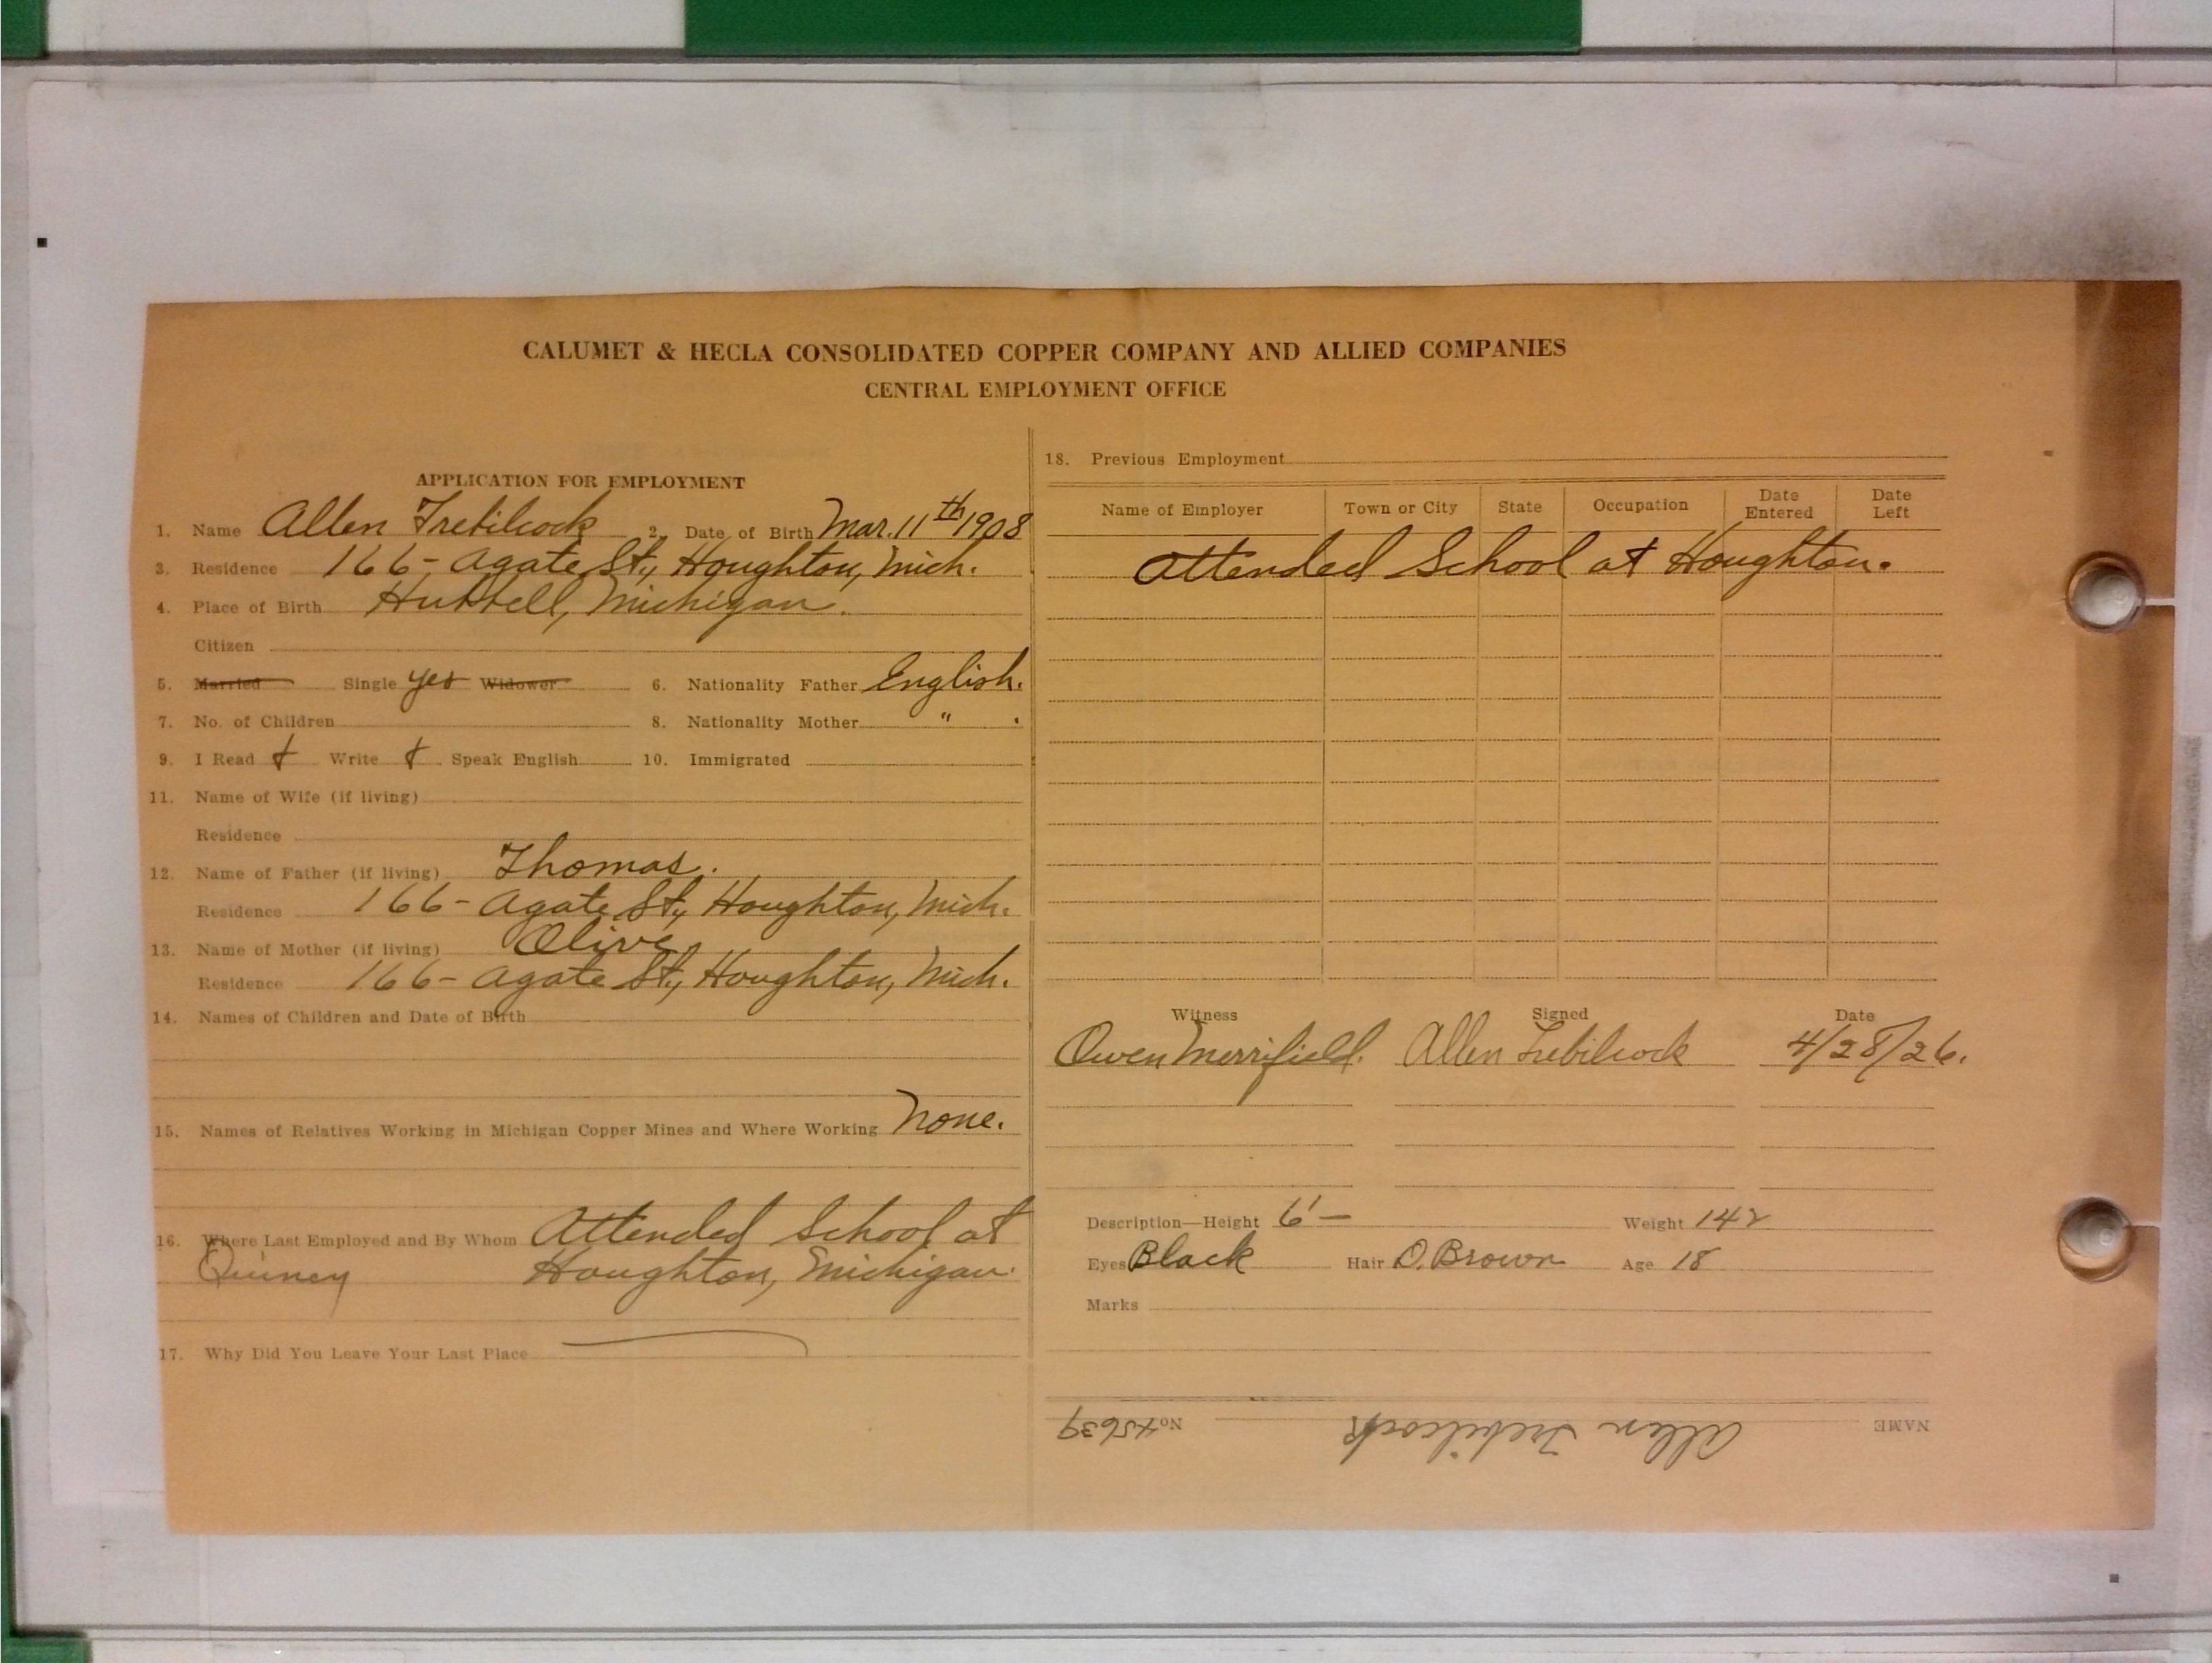 CALUMET & HECLA CONSOLIDATED COPPER COMPANY AND ALLIED COMPANIES
CENTRAL EMPLOYMENT OFFICE
APPLICATION FOR EMPLOYMENT
1. Name Allen Trebilcock 2. Date of Birth Mar. 11th 1908
3. Residence 166- Agate St., Houghton, Mich.
4. Place of Birth Hubbell, Michigan.
Citizen
5. Married Single yes Widower 6. Nationality Father English.
7. No. of Children 8. Nationality Mother " .
9. I Read Write Speak English 10. Immigrated
11. Name of Wife (if living)
Residence
12. Name of Father (if living) Thomas.
Residence 166- Agate St., Houghton, Mich.
13. Name of Mother (if living) Olive,
Residence 166- Agate St., Houghton, Mich.
14. Names of Children and Date of Birth
15. Names of Relatives Working in Michigan Copper Mines and Where Working None.
16. Where Last Employed and By Whom Attended School at
Quincy Houghton, Michigan.
17. Why Did You Leave Your Last Place
18. Previous Employment
Name of Employer Town or City State Occupation Date Entered Date Left
Attended School at Houghton.
Witness Signed Date
Owen Merrifield. Allen Trebilcock 4/28/26.
Description—Height 6'— Weight 142
Eyes Black Hair D. Brown Age 18
Marks
NAME Allen Trebilcock No. 45639